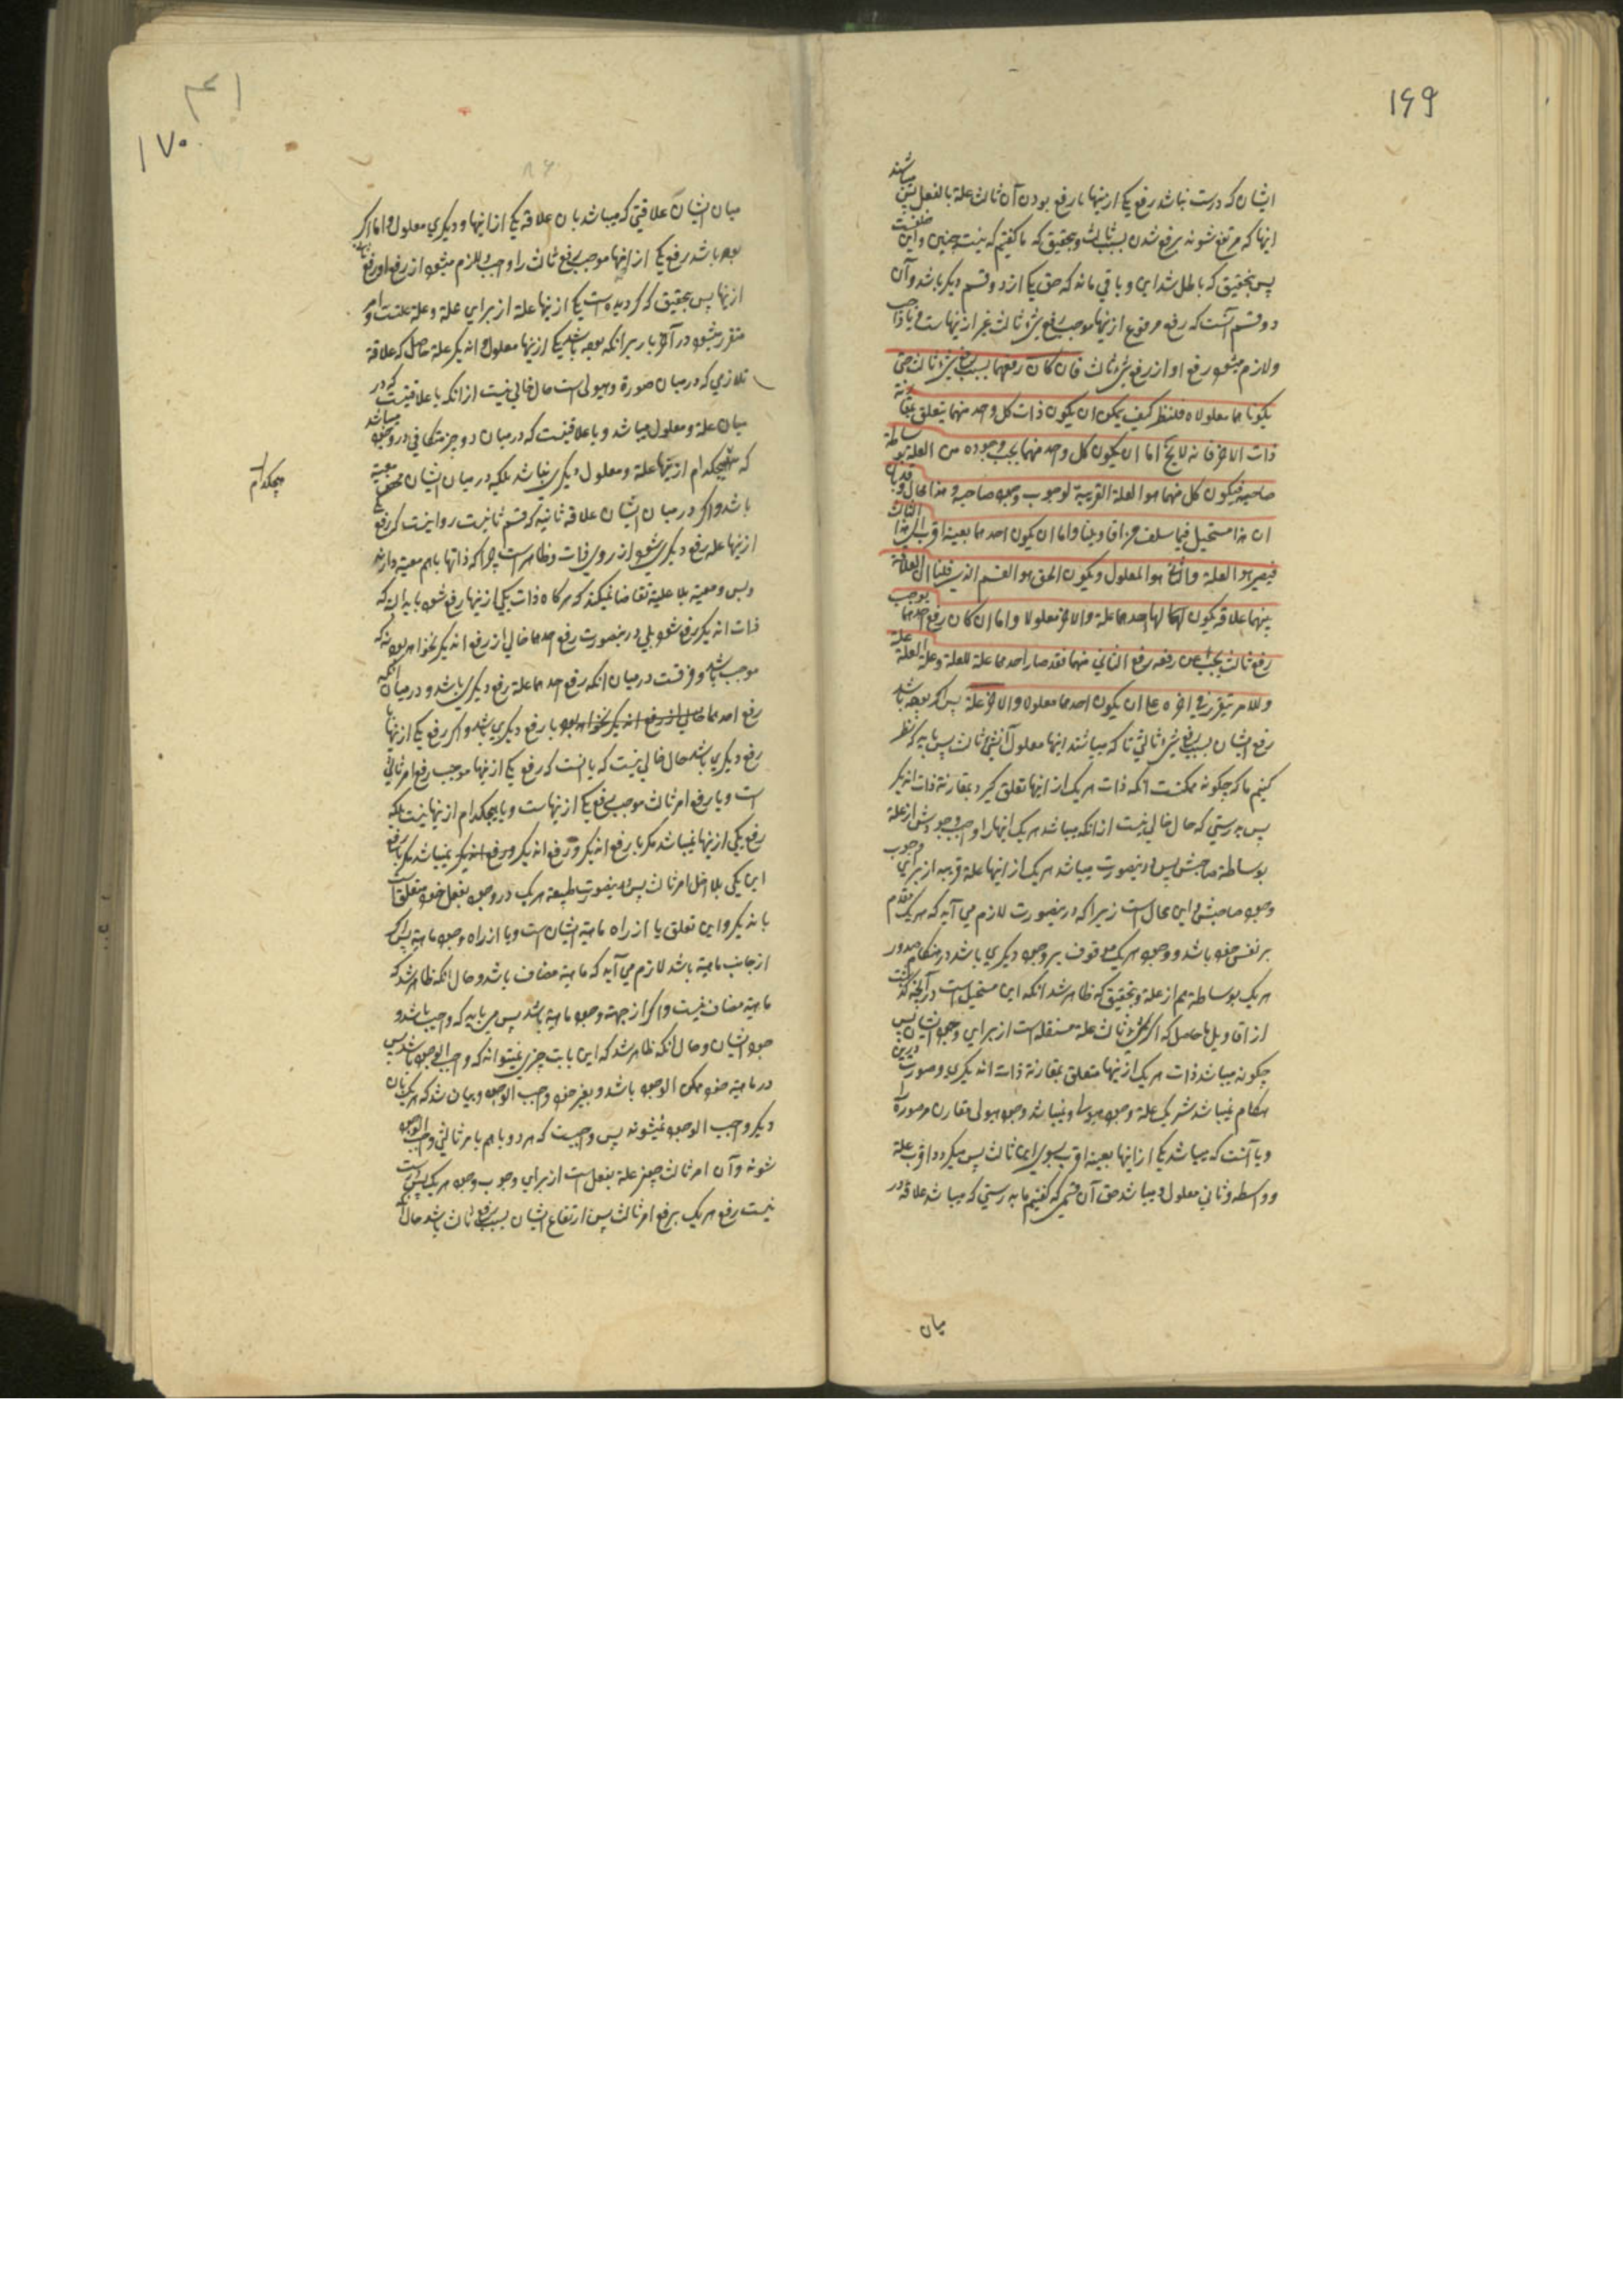 ۱۶۹
ایشان که درست نباشد رفع یکی ازینها با رفع بودن آن ثالث علة بالفعل
اینها که مرتفع شوند برفع شدن بسبب ثالث و بتحقیق که ما گفتیم که نیست چنین و این
پس بتحقیق که باطل شد این و باقی ماند که حق یکی از دو قسم دیگر باشد و آن
دو قسم آنست که رفع مرفوع ازینها موجب رفع شیء ثالث غیر ازینهاست و یا
ولازم میشود رفع او از رفع شیء ثالث فان کان رفعهما بسبب رفع شیء ثالث حتی
یکونا هما معلولاه فلننظر کیف یمکن ان یکون ذات کل واحد منهما یتعلق بمقارنة
ذات الاخر فانه لا یخ اما ان یکون کل واحد منهما یجب وجوده من العلة بوساطة
صاحبه فیکون کل منهما هو العلة القریبة لوجوب وجود صاحبه و هذا محال وقد بان
ان هذا مستحیل فیما سلف من اقاویلنا و اما ان یکون احدهما بعینه اقرب الی هذا الثالث
فیصیر هو العلة و الثانی هو المعلول و یکون الحق هو القسم الذی قلنا ان العلاقة
بینهما علاقة یکون لها احدهما علة و الاخر معلولا و اما ان کان رفع احدهما یوجب
رفع ثالث یجب عن رفعه رفع الثانی منهما فقد صار احدهما علة للعلة و علة العلة علة
و الامر یتقرر فی اخره علی ان یکون احدهما معلولا و الاخر علة پس اگر بوده باشد
رفع ایشان بسبب رفع شیء ثالثی تا که میباشند اینها معلول آن شیء ثالث پس باید که نظر
کنیم ما که چگونه ممکنست انکه ذات هریک از اینها تعلق گیرد بمقارنة ذات اندیکر
پس بدرستی که حال خالی نیست از انکه میباشد هریک اینها را واجب وجودش از علة
بوساطة صاحبش پس درینصورت میباشد هریک از اینها علة قریبه از برای وجوب
وجود صاحبش و این محال است زیرا که درینصورت لازم می آید که هریک مقدم
بر نفس خود باشد و وجود هریک موقوف بر وجود دیگری باشد در هنگام صدور
هریک بوساطة هم از علة و بتحقیق که ظاهر شد انکه این مستحیل است در آنچه گذشت
از اقاویل ما حاصل که اگر شیء ثالث علة مستقله است از برای وجود ایشان پس
چگونه میباشد ذات هریک ازینها متعلق بمقارنة ذات اندیکری و صورت درین
هنگام نمیباشد شریک علة وجود هیولی و نمیباشد وجود هیولی مقارن مر صورة را
و یا آنست که میباشد یکی از اینها بعینه اقرب بسوی این ثالث پس میگردد اقرب علة
و واسطه و ثانی معلول و میباشد حق آن قسمی که گفتیم ما بدرستی که میباشد علاقه در
میان
۱۷۰
میان ایشان علاقتی که میباشد بان علاقه یکی از اینها و دیگری معلول و اما اگر
بوده باشد رفع یکی از اینها موجب رفع ثالث را واجب و لازم میشود از رفع او رفع
ازینها پس بتحقیق که گردیده است یکی ازینها علة از برای علة و علة علت است و امر
متقرر میشود در آخر بار بر انکه بوده باشد یکی ازینها معلول و اندیگر علة حاصل که علاقة
تلازمی که درمیان صورة و هیولی است حال خالی نیست از انکه یا علاقتیست که در
میان علة و معلول میباشد و یا علاقتیست که درمیان دو چیز متکافی در وجود میباشد
که هیچکدام ازینها علة و معلول دیگری نباشد بلکه درمیان ایشان معیة
هیچکدام
باشد و اگر درمیان ایشان علاقه ثانیه که قسم ثانیست روا نیست که رفع
ازینها علة رفع دیگری شود از روی ذات و ظاهر است چرا که ذاتها باهم معیة دارند
و بس و معیة بلا علیة تقاضا نمیکند که هرگاه ذات یکی ازینها رفع شود باید انکه
ذات اندیکر رفع شود بلی درینصورت رفع احدهما خالی از رفع اندیگر نخواهد بود نه که
موجب باشد و فرقست درمیان انکه رفع احدهما علة رفع دیگری باشد و درمیان انکه
رفع احدهما خالی از رفع اندیکر نخواهد بود با رفع دیگری باشد و اگر رفع یکی ازینها با
رفع دیگری باشد حال خالی نیست که یا انست که رفع یکی ازینها موجب رفع امر ثالثی
است و یا رفع امر ثالث موجب رفع یکی ازینهاست و یا هیچکدام ازینها نیست بلکه
رفع یکی ازینها نمیباشد مگر با رفع اندیکر و رفع اندیکر و رفع اندیکر نمیباشد مگر با رفع
این یکی بلا دخل امر ثالث پس درینصورت طبیعة هریک در وجود بفعل خود متعلق است
باندیگر و این تعلق یا از راه ماهیة ایشان است و یا از راه وجود ماهیة پس اگر
از جانب ماهیة باشد لازم می آید که ماهیة مضاف باشد و حال انکه ظاهر شد که
ماهیة مضاف نیست و اگر از جهة وجود ماهیة باشد پس می باید که واجب باشد
وجود ایشان و حال انکه ظاهر شد که این بابت چیزی نمیتواند که واجب الوجود باشد پس
در ماهیة خود ممکن الوجود باشد و بغیر خود واجب الوجود و بیان شد که هریک بان
دیگر واجب الوجود نمیشوند پس واجبست که هردو باهم بامر ثالثی واجب الوجود
شوند و آن امر ثالث چیز علة بفعل است از برای وجوب وجود هریک پس درست
نیست رفع هریک برفع امر ثالث پس ارتفاع ایشان بسبب رفع ثالث باشد حال